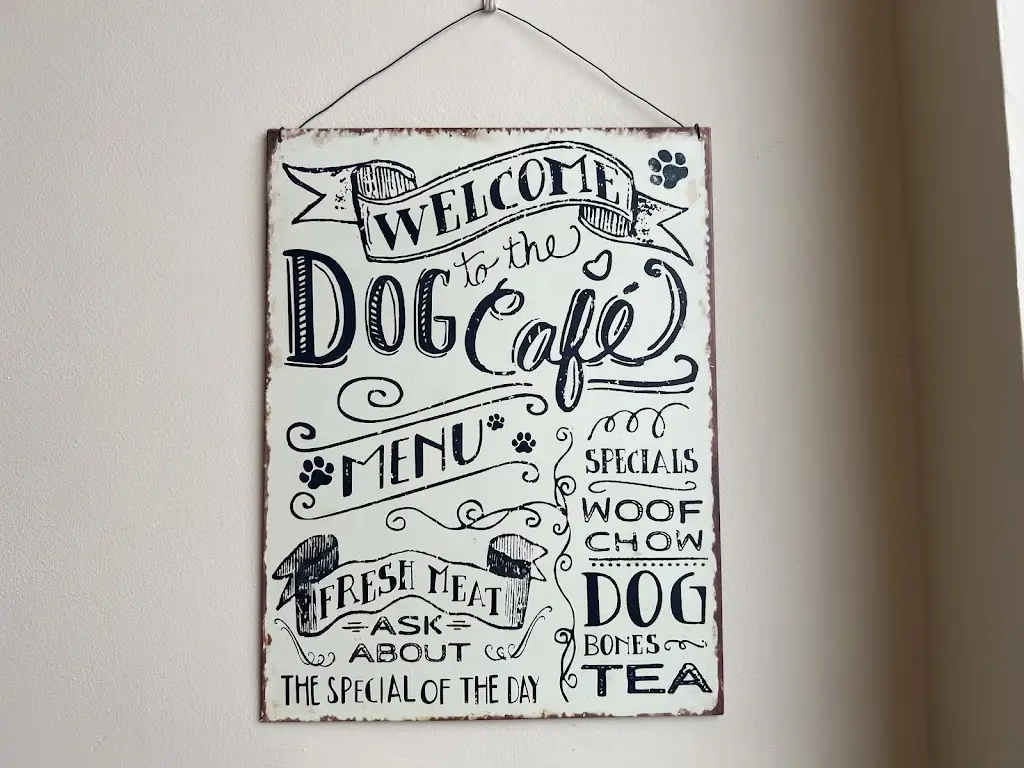 WELCOME
to the
DOG Café
MENU
FRESH MEAT
ASK
ABOUT
THE SPECIAL OF THE DAY
SPECIALS
WOOF
CHOW
DOG
BONES
TEA